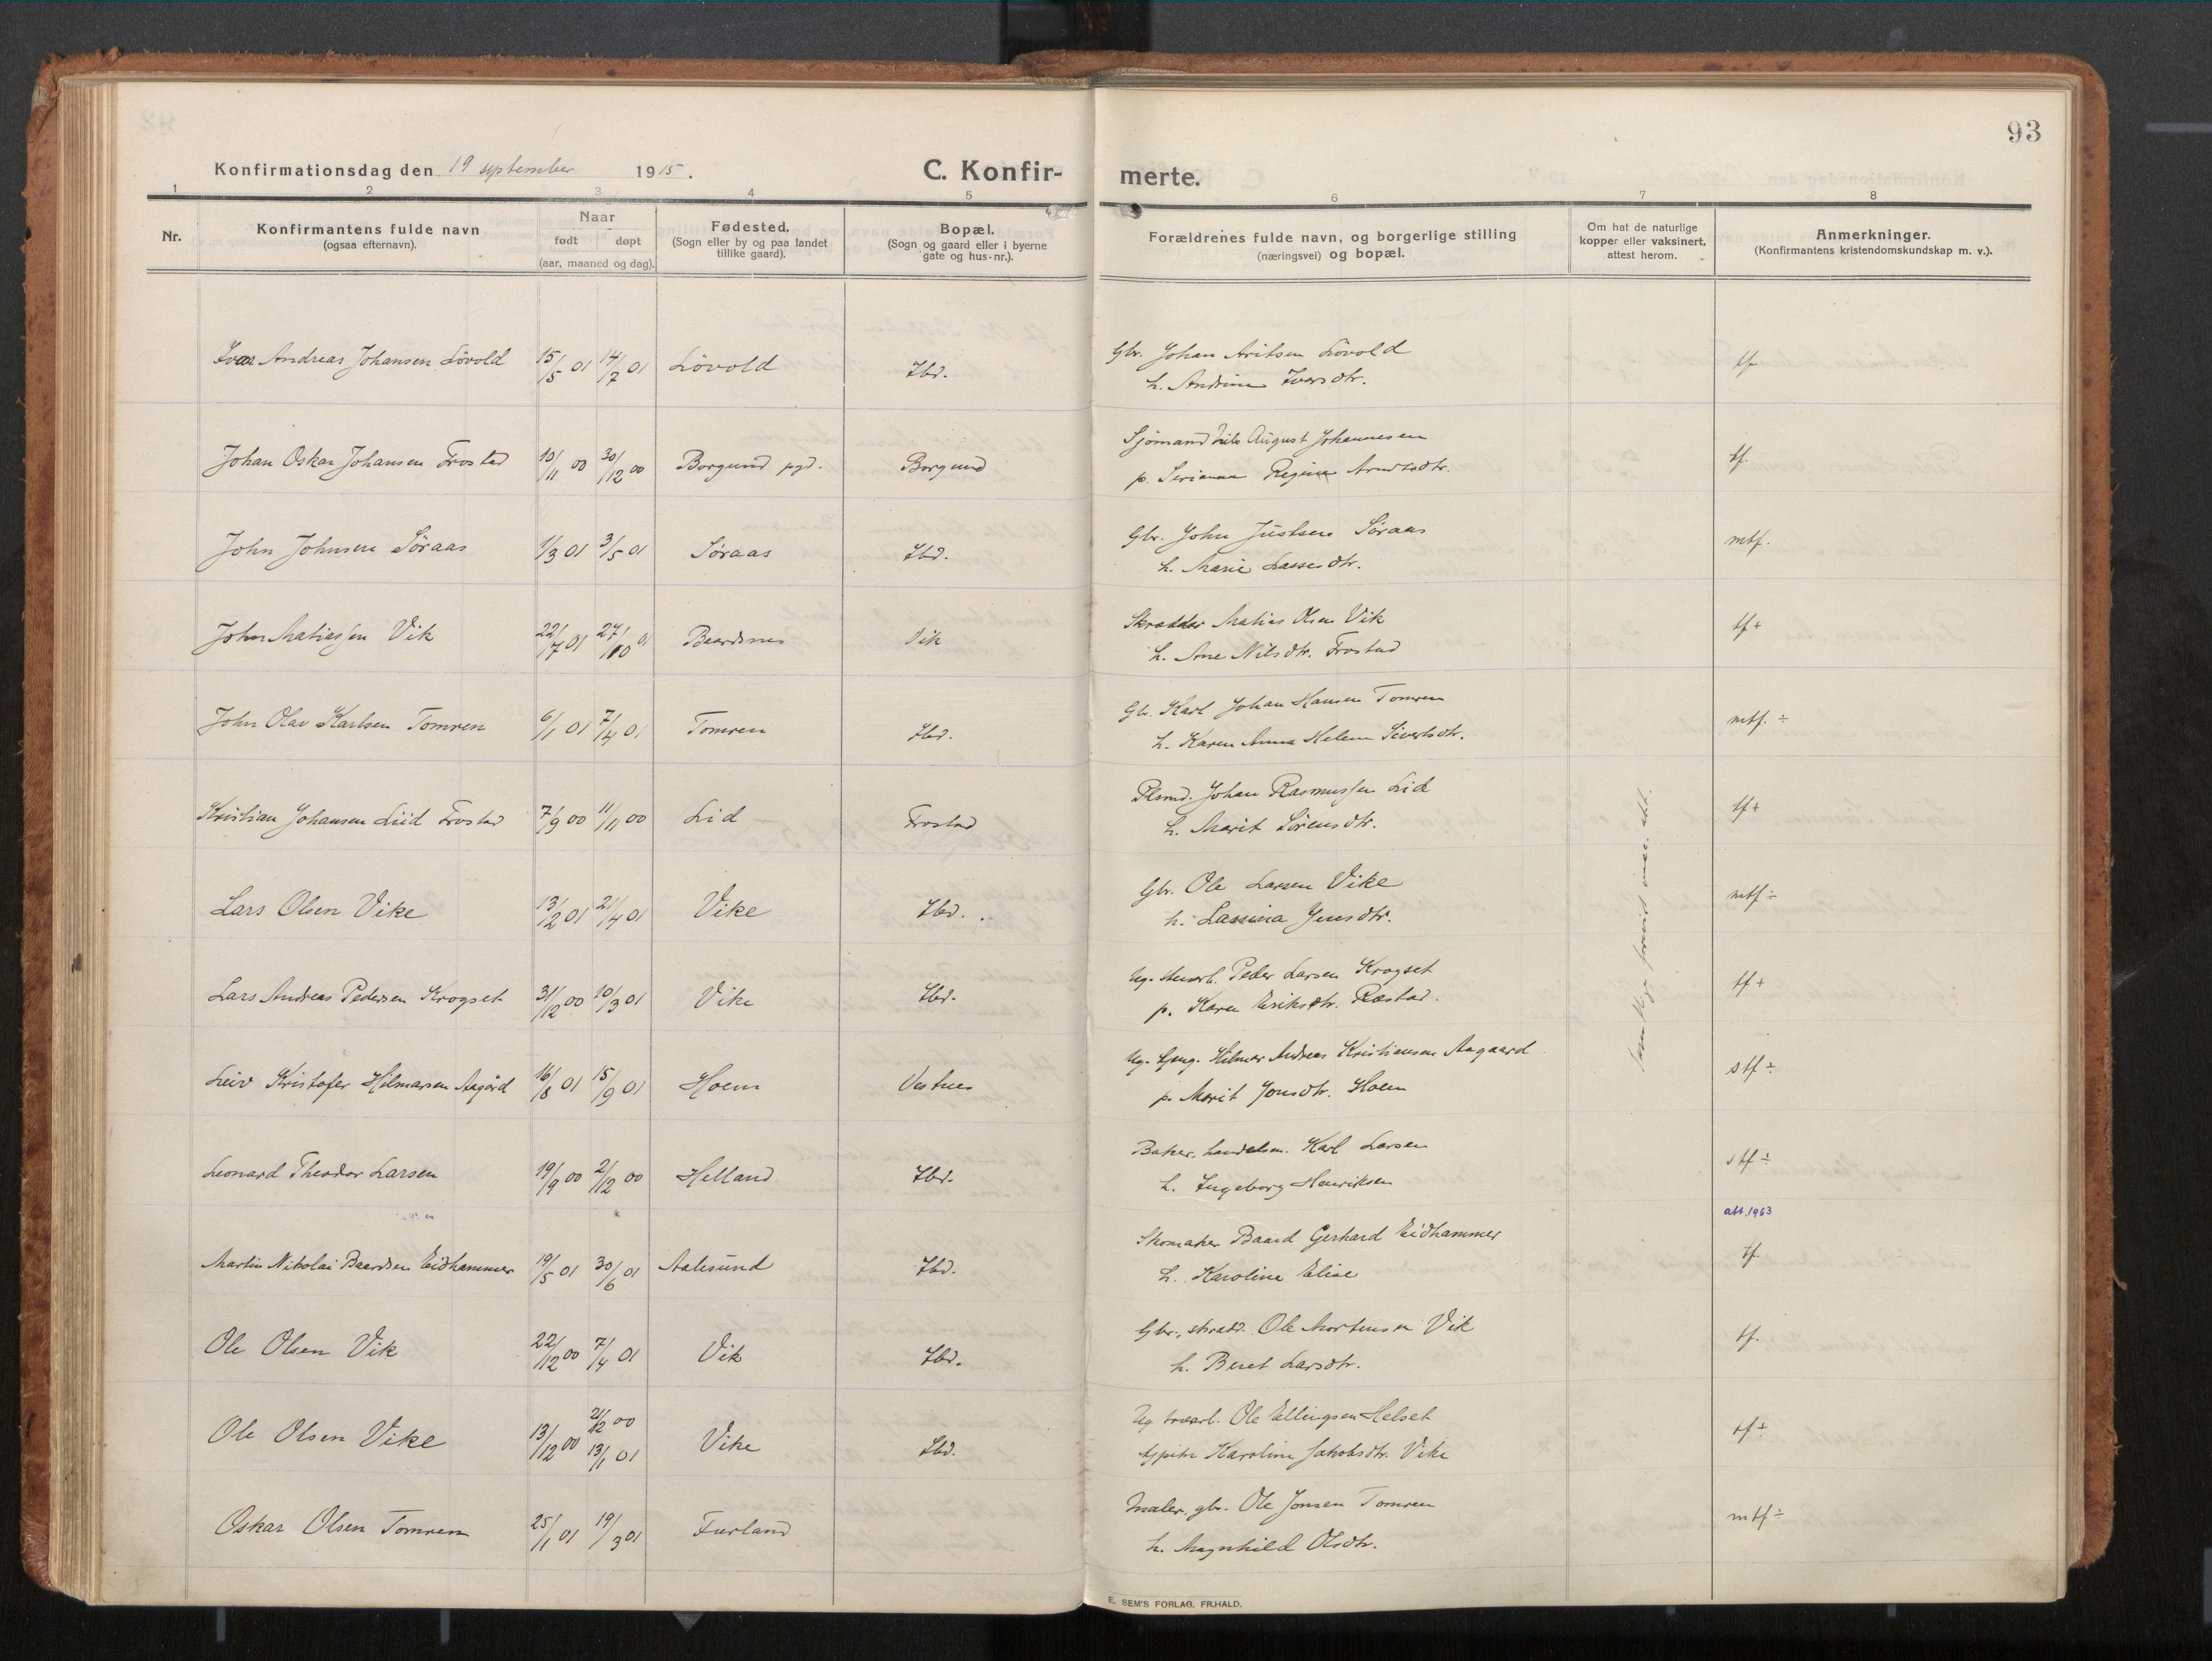 93
Konfirmationsdag den 19 september 1915.
C. Konfir-merte.
1 2 3 4 5 6 7 8
Nr.
Konfirmantens fulde navn
(ogsaa efternavn).
Naar
født døpt
(aar, maaned og dag).
Fødested.
(Sogn eller by og paa landet
tillike gaard).
Bopæl.
(Sogn og gaard eller i byerne
gate og hus-nr.).
Forældrenes fulde navn, og borgerlige stilling
(næringsvei) og bopæl.
Om hat de naturlige
kopper eller vaksinert,
attest herom.
Anmerkninger.
(Konfirmantens kristendomskundskap m. v.).
Ivar Andreas Johansen Lövold 15/5 01 14/7 01 Lövold Ibd.
Gbr. Johan Lövold
h. Andrine Iversdtr.
tf.
Johan Oskar Johansen Frostad 10/11 00 30/12 00 Borgund pgd. Borgund
Sjömand Nils August Johannesen
p. Serianna Regine
tf.
John Johnsen Söraas 1/3 01 3/5 01 Söraas Ibd.
Gbr. John Justsen Söraas
h. Marie Lassesdtr.
mtf.
John Matiassen Vik 22/7 01 27/10 01 Baardsnes Vik
Skrædder Matias Olsen Vik
h. Ane Nilsdtr. Frostad
tf +
John Olav Karlsen Tomren 6/1 01 7/4 01 Tomren Ibd.
Gbr. Karl Johan Hansen Tomren
h. Karen Anna Helene Sivertsdtr.
mtf. ÷
Kristian Johansen Liid Frostad 7/9 00 11/11 00 Lid Frostad
Plsmd. Johan Rasmussen Lid
h. Marit Sörensdtr.
tf +
Lars Olsen Vike 13/2 01 21/4 01 Vike Ibd.
Gbr. Ole Larsen Vike
h. Lassina Jensdtr.
mtf ÷
Lars Andreas Pedersen Krogset 31/12 00 10/3 01 Vike Ibd.
Ug. Peder Larsen Krogset
p. Karen Eriksdtr. Ræstad.
tf +
Leiv Kristofer Hilmarsen Aagård 16/8 01 15/9 01 Hoem Vestnes
Ug. Hilmar Andreas Kristiansen Aagaard
p. Marit Jonsdtr. Hoem
stf ÷
Leonard Theodor Larsen 19/9 00 2/12 00 Helland Ibd.
Baker, handelsm. Karl Larsen
h. Ingeborg Henriksen
stf ÷
att. 1963
Martin Nikolai Baardsen Eidhammer 19/5 01 30/6 01 Aalesund Ibd.
Skomaker Baard Gerhard Eidhammer
h. Karoline Elise
tf.
Ole Olsen Vik 22/12 00 7/4 01 Vik Ibd.
Gbr., skrædd. Ole Mortensen Vik
h. Beret Larsdtr.
tf.
Ole Olsen Vike 13/12 00 21/12 00 13/1 01 Vike Ibd.
Ug. Ole Ellingsen Helset
og pike Karoline Jakobsdtr. Vike
tf ÷
Oskar Olsen Tomren 25/1 01 19/3 01 Furland
Maler, gbr. Ole Jonsen Tomren
h. Magnhild Olsdtr.
mtf ÷
E. SEM'S FORLAG, FR.HALD.